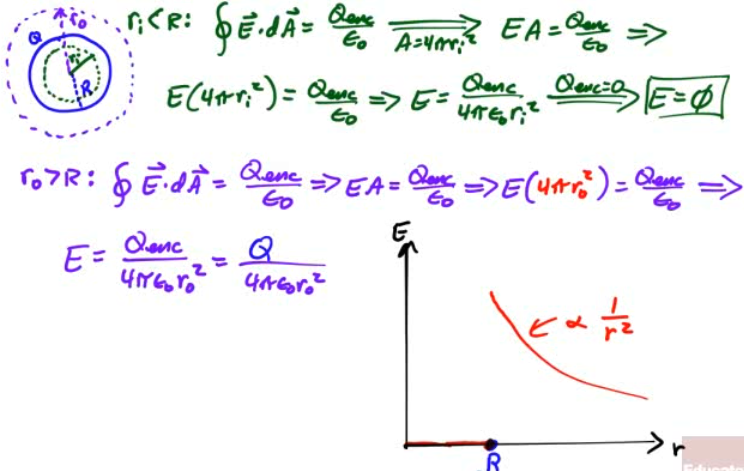 r₀
Q
rᵢ
R
rᵢ < R: ∮ E⃗·dA⃗ = Qenc/ε₀ ⟹ A=4πrᵢ² EA = Qenc/ε₀ ⟹
E(4πrᵢ²) = Qenc/ε₀ ⟹ E = Qenc/4πε₀rᵢ² Qenc=0 ⟹ E = ϕ
r₀ > R: ∮ E⃗·dA⃗ = Qenc/ε₀ ⟹ EA = Qenc/ε₀ ⟹ E(4πr₀²) = Qenc/ε₀ ⟹
E = Qenc/4πε₀r₀² = Q/4πε₀r₀²
E
← ∝ 1/r²
r
R